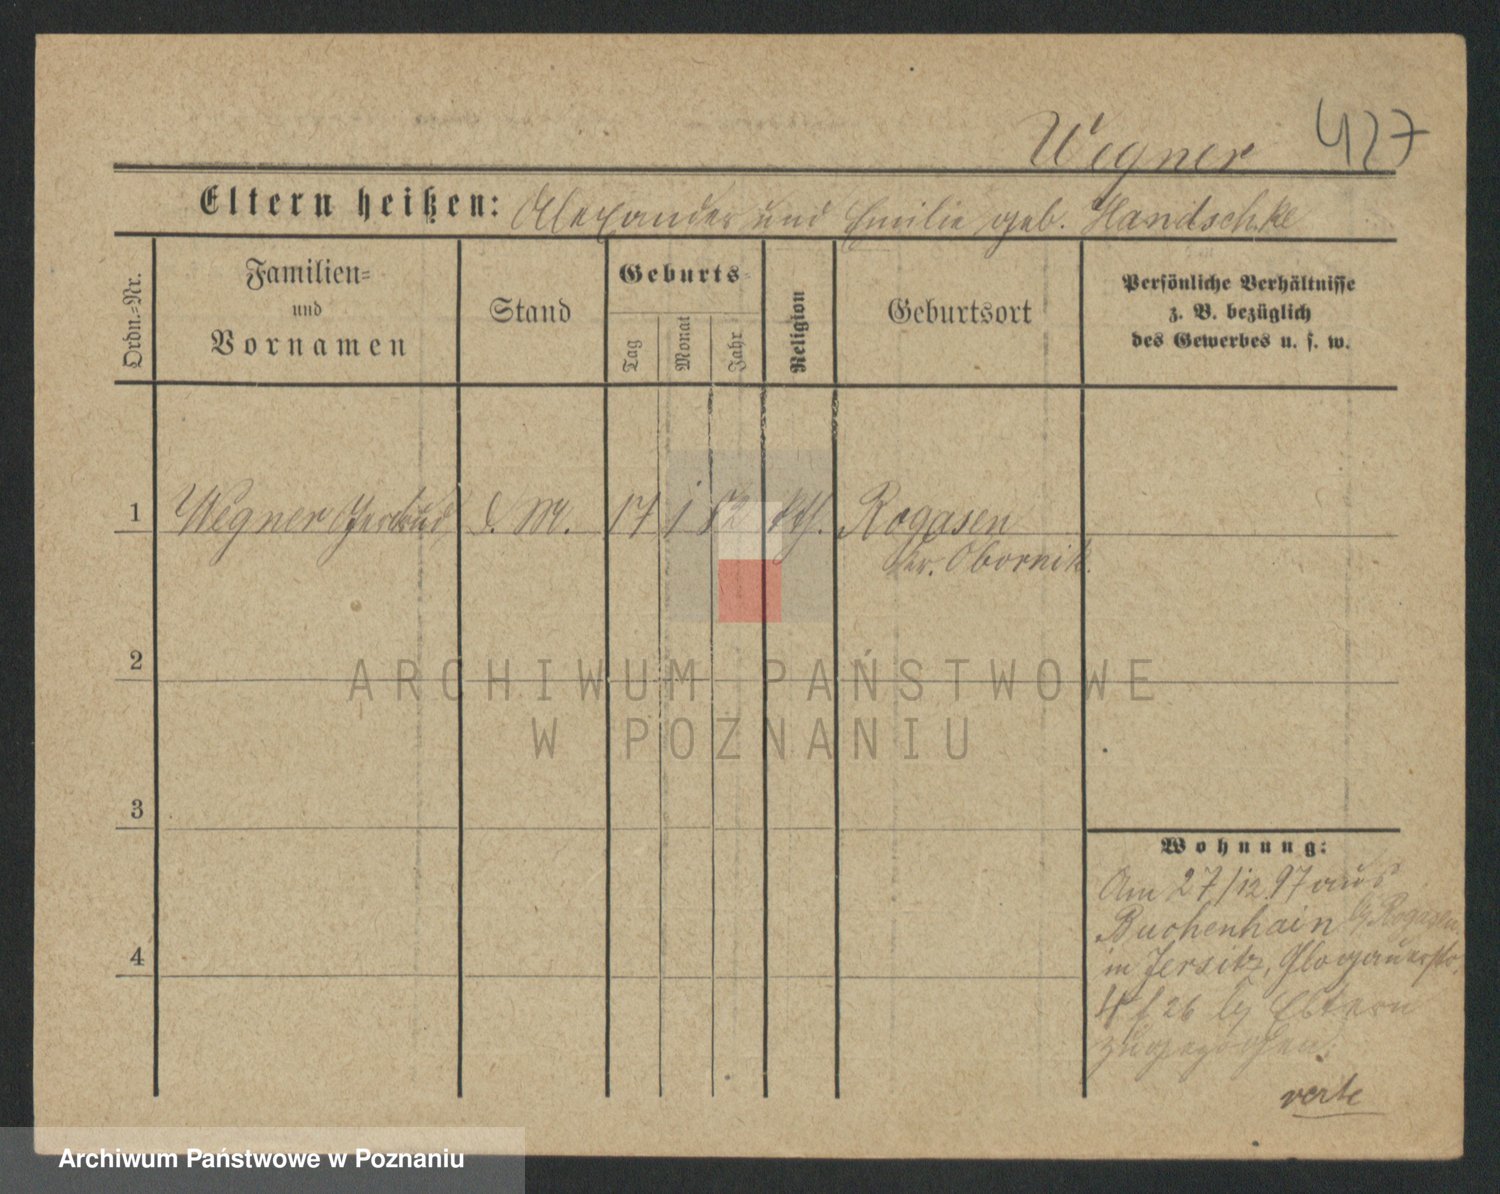 Wegner 427
Eltern heißen: Alexander und Emilie geb. Handschke
Ordn.=Nr.
Familien=
und
Vornamen
Stand
Geburts=
Tag
Monat
Jahr
Religion
Geburtsort
Persönliche Verhältnisse
z. B. bezüglich
des Gewerbes u. s. w.
1 Wegner Gertrud d. M. 17 1 82 kth. Rogasen
Kr. Obornik.
2
ARCHIWUM PAŃSTWOWE
W POZNANIU
3
Wohnung:
Am 27/12 97 aus
Buchenhain b/ Rogasen
in Jersitz, Glogauerstr.
4
zugezogen.
Eltern
verte
Archiwum Państwowe w Poznaniu